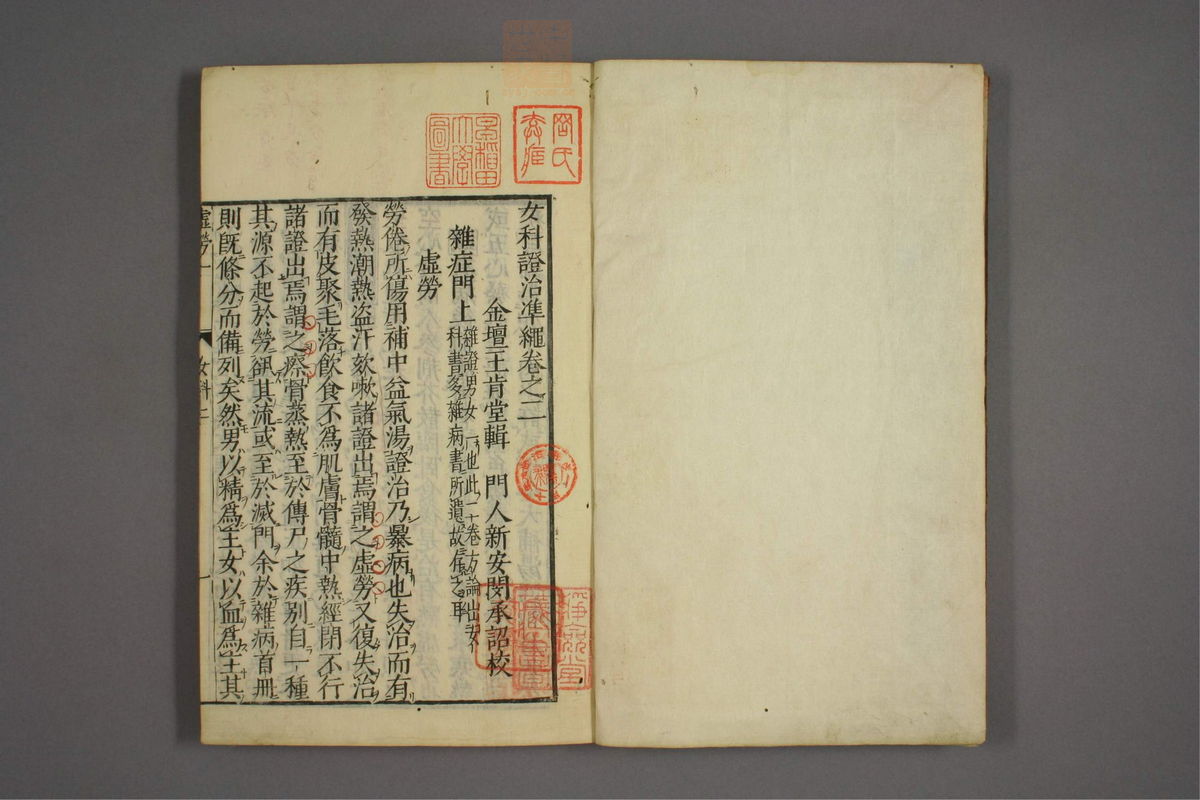 女科證治準繩卷之二
金壇王肯堂輯　門人新安閔承詔校
雜症門上
雜證男女一也此二十卷方論出女
科書多雜病書所遺故存之耳
虛勞
勞倦所傷用補中益氣湯證治乃暴病也失治而有
發熱潮熱盜汗欬嗽諸證出焉謂之虛勞又復失治
而有皮聚毛落飲食不爲肌膚骨髓中熱經閉不行
諸證出焉謂之瘵骨蒸熱至於傳尸之疾别自一種
其源不起於勞倦其流或至於滅門余於雜病首冊
則旣條分而備列矣然男以精爲主女以血爲主其
虛勞一
女科二
一
早稲田大學圖書